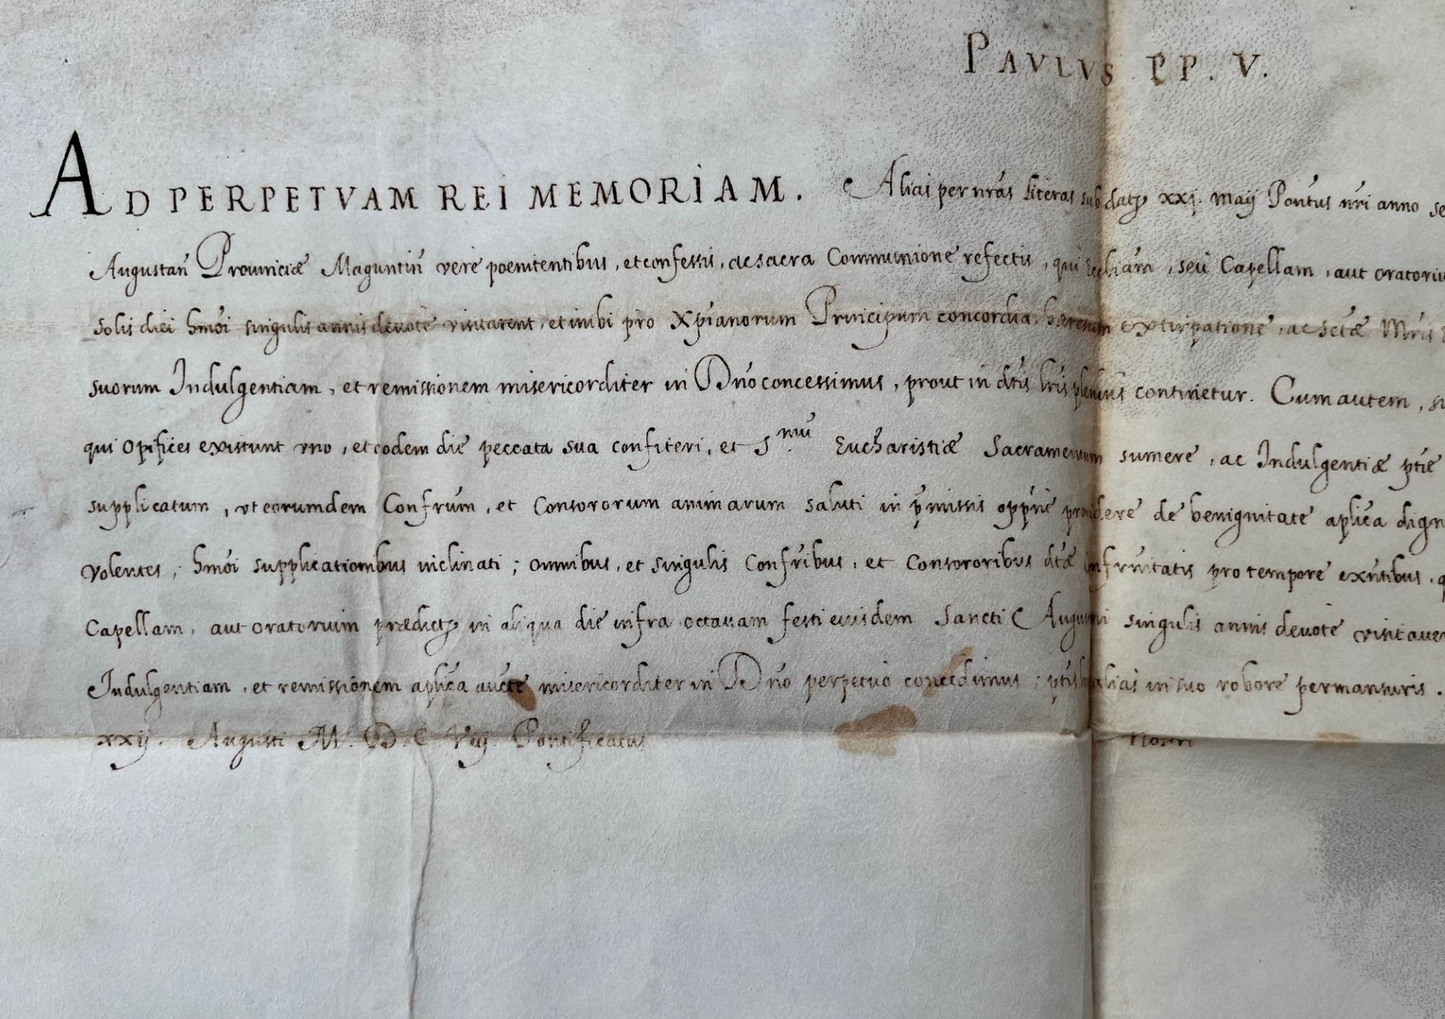 PAVLVS PP. V.
AD PERPETVAM REI MEMORIAM. Alias per nr̃as literas sub datȩ xxj. Maij Pont̃us nr̃i anno se
Augustan̄ Provinciæ Maguntin̄ vere poenitentibus, et confessis, ac sacra Communione refectis, qui Eccliam̄, seu Capellam, aut oratoriu
Solis diei hmõi singulis annis devotè visitarent, et inibi pro Xp̄ianorum Principum concordia, extirpatione, ac sctæ M̄ris
suorum Indulgentiam, et remissionem misericorditer in Dño concessimus, prout in dtĩs lrĩs plenius continetur. Cum autem, si
qui Opifices existunt vno, et eodem die peccata sua confiteri, et S.mũ Eucharistiæ Sacramentum sumere, ac Indulgentiæ
supplicatum, vt eorumdem Confrũm, et Consororum animarum saluti in p̄missis opp̄ne providere de benignitate aplĩca dign
volentes, hmõi supplicationibus inclinati; omnibus, et singulis Confrĩbus, et Consororibus dtæ̃ pro tempore exñtibus, q
Capellam, aut oratorium prædictȩ in aliqua die infra octavam festi eiusdem Sancti singulis annis devotè visitaver
Indulgentiam, et remissionem aplĩca aucte misericorditer in Dño perpetuò concedimus; alias in suo robore permansuris.
xxij. Augusti M. D. C. Viij. Pontificatus nostri